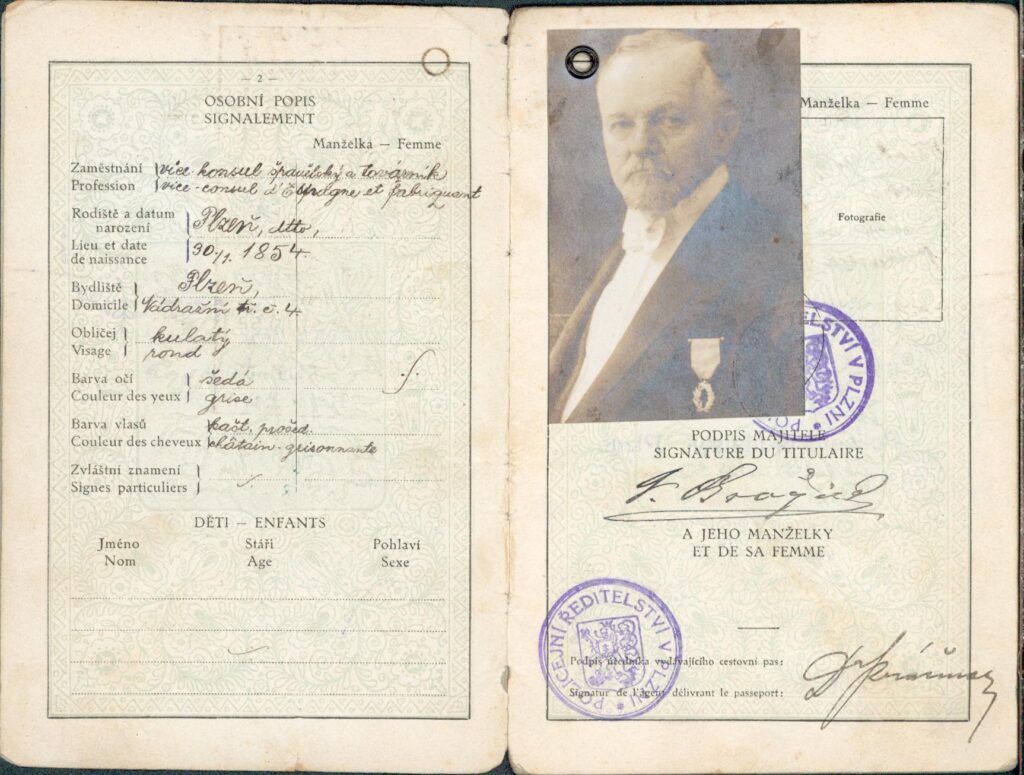 — 2 —
OSOBNÍ POPIS
SIGNALEMENT
Manželka — Femme
Zaměstnání více konsul španělský a továrník
Profession vice-consul d'Espagne et fabriquant
Rodiště a datum
narození Plzeň, dtto,
Lieu et date
de naissance 30./1. 1854.
Bydliště Plzeň,
Domicile Nádražní tř. č. 4
Obličej kulatý
Visage rond
Barva očí šedá
Couleur des yeux grise
Barva vlasů kašt. prošed.
Couleur des cheveux châtain-grisonnante
Zvláštní znamení
Signes particuliers
DĚTI — ENFANTS
Jméno Stáří Pohlaví
Nom Age Sexe
Manželka — Femme
Fotografie
PODPIS MAJITELE
SIGNATURE DU TITULAIRE
A JEHO MANŽELKY
ET DE SA FEMME
POLICEJNÍ ŘEDITELSTVÍ V PLZNI
Podpis úředníka vydávajícího cestovní pas:
Signatur de l'agent délivrant le passeport: